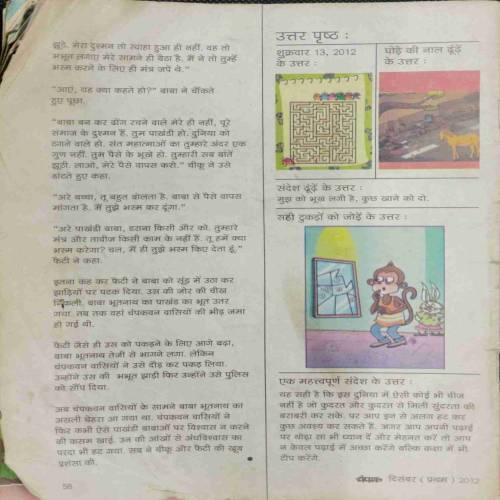 झूठे. मेरा दुश्मन तो स्वाहा हुआ ही नहीं. वह तो
भभूत लगाए मेरे सामने ही बैठा है. मैं ने तो तुम्हें
भस्म करने के लिए ही मंत्र जपे थे.”
“आएं, यह क्या कहते हो?” बाबा ने चौंकते
हुए पूछा.
“बाबा बन कर ढोंग रचने वाले मेरे ही नहीं, पूरे
समाज के दुश्मन हैं. तुम पाखंडी हो. दुनिया को
ठगने वाले हो. संत महात्माओं का तुम्हारे अंदर एक
गुण नहीं. तुम पैसे के भूखे हो. तुम्हारी सब बातें
झूठी. लाओ, मेरे पैसे वापस करो.” चीकू ने उसे
डांटते हुए कहा.
“अरे बच्चा, तू बहुत बोलता है. बाबा से पैसे वापस
मांगता है. मैं तुझे भस्म कर दूंगा.”
“अरे पाखंडी बाबा, डराना किसी और को. तुम्हारे
मंत्र और ताबीज किसी काम के नहीं हैं. तू हमें क्या
भस्म करेगा? चल, मैं ही तुझे भस्म किए देता हूं.”
फैटी ने कहा.
इतना कह कर फैटी ने बाबा को सूंड़ में उठा कर
झाड़ियों पर पटक दिया. उस की जोर की चीख
निकली. बाबा भूतनाथ का पाखंड का भूत उतर
गया. तब तक वहां चंपकवन वासियों की भीड़ जमा
हो गई थी.
फैटी जैसे ही उस को पकड़ने के लिए आगे बढ़ा,
बाबा भूतनाथ तेजी से भागने लगा. लेकिन
चंपकवन वासियों ने उसे दौड़ कर पकड़ लिया.
उन्होंने उस की भभूत झाड़ी फिर उन्होंने उसे पुलिस
को सौंप दिया.
अब चंपकवन वासियों के सामने बाबा भूतनाथ का
असली चेहरा आ गया था. चंपकवन वासियों ने
फिर कभी ऐसे पाखंडी बाबाओं पर विश्वास न करने
की कसम खाई. उन की आंखों से अंधविश्वास का
परदा भी हट गया. सब ने चीकू और फैटी की खूब
प्रशंसा की.
56
उत्तर पृष्ठ :
शुक्रवार 13, 2012
के उत्तर :
घोड़े की नाल ढूंढ़ें
के उत्तर :
संदेश ढूंढ़ें के उत्तर :
मुझ को भूख लगी है, कुछ खाने को दो.
सही टुकड़ों को जोड़ें के उत्तर :
एक महत्त्वपूर्ण संदेश के उत्तर :
यह सही है कि इस दुनिया में ऐसी कोई भी चीज
नहीं है जो कुदरत और कुदरत से मिली सुंदरता की
बराबरी कर सके. पर आप इन से अलग हट कर
कुछ अवश्य कर सकते हैं. अगर आप अपनी पढ़ाई
पर थोड़ा सा भी ध्यान दें और मेहनत करें तो आप
न केवल पढ़ाई में अच्छा करेंगे बल्कि कक्षा में भी
टौप करेंगे.
चंपक दिसंबर ( प्रथम ) 2012